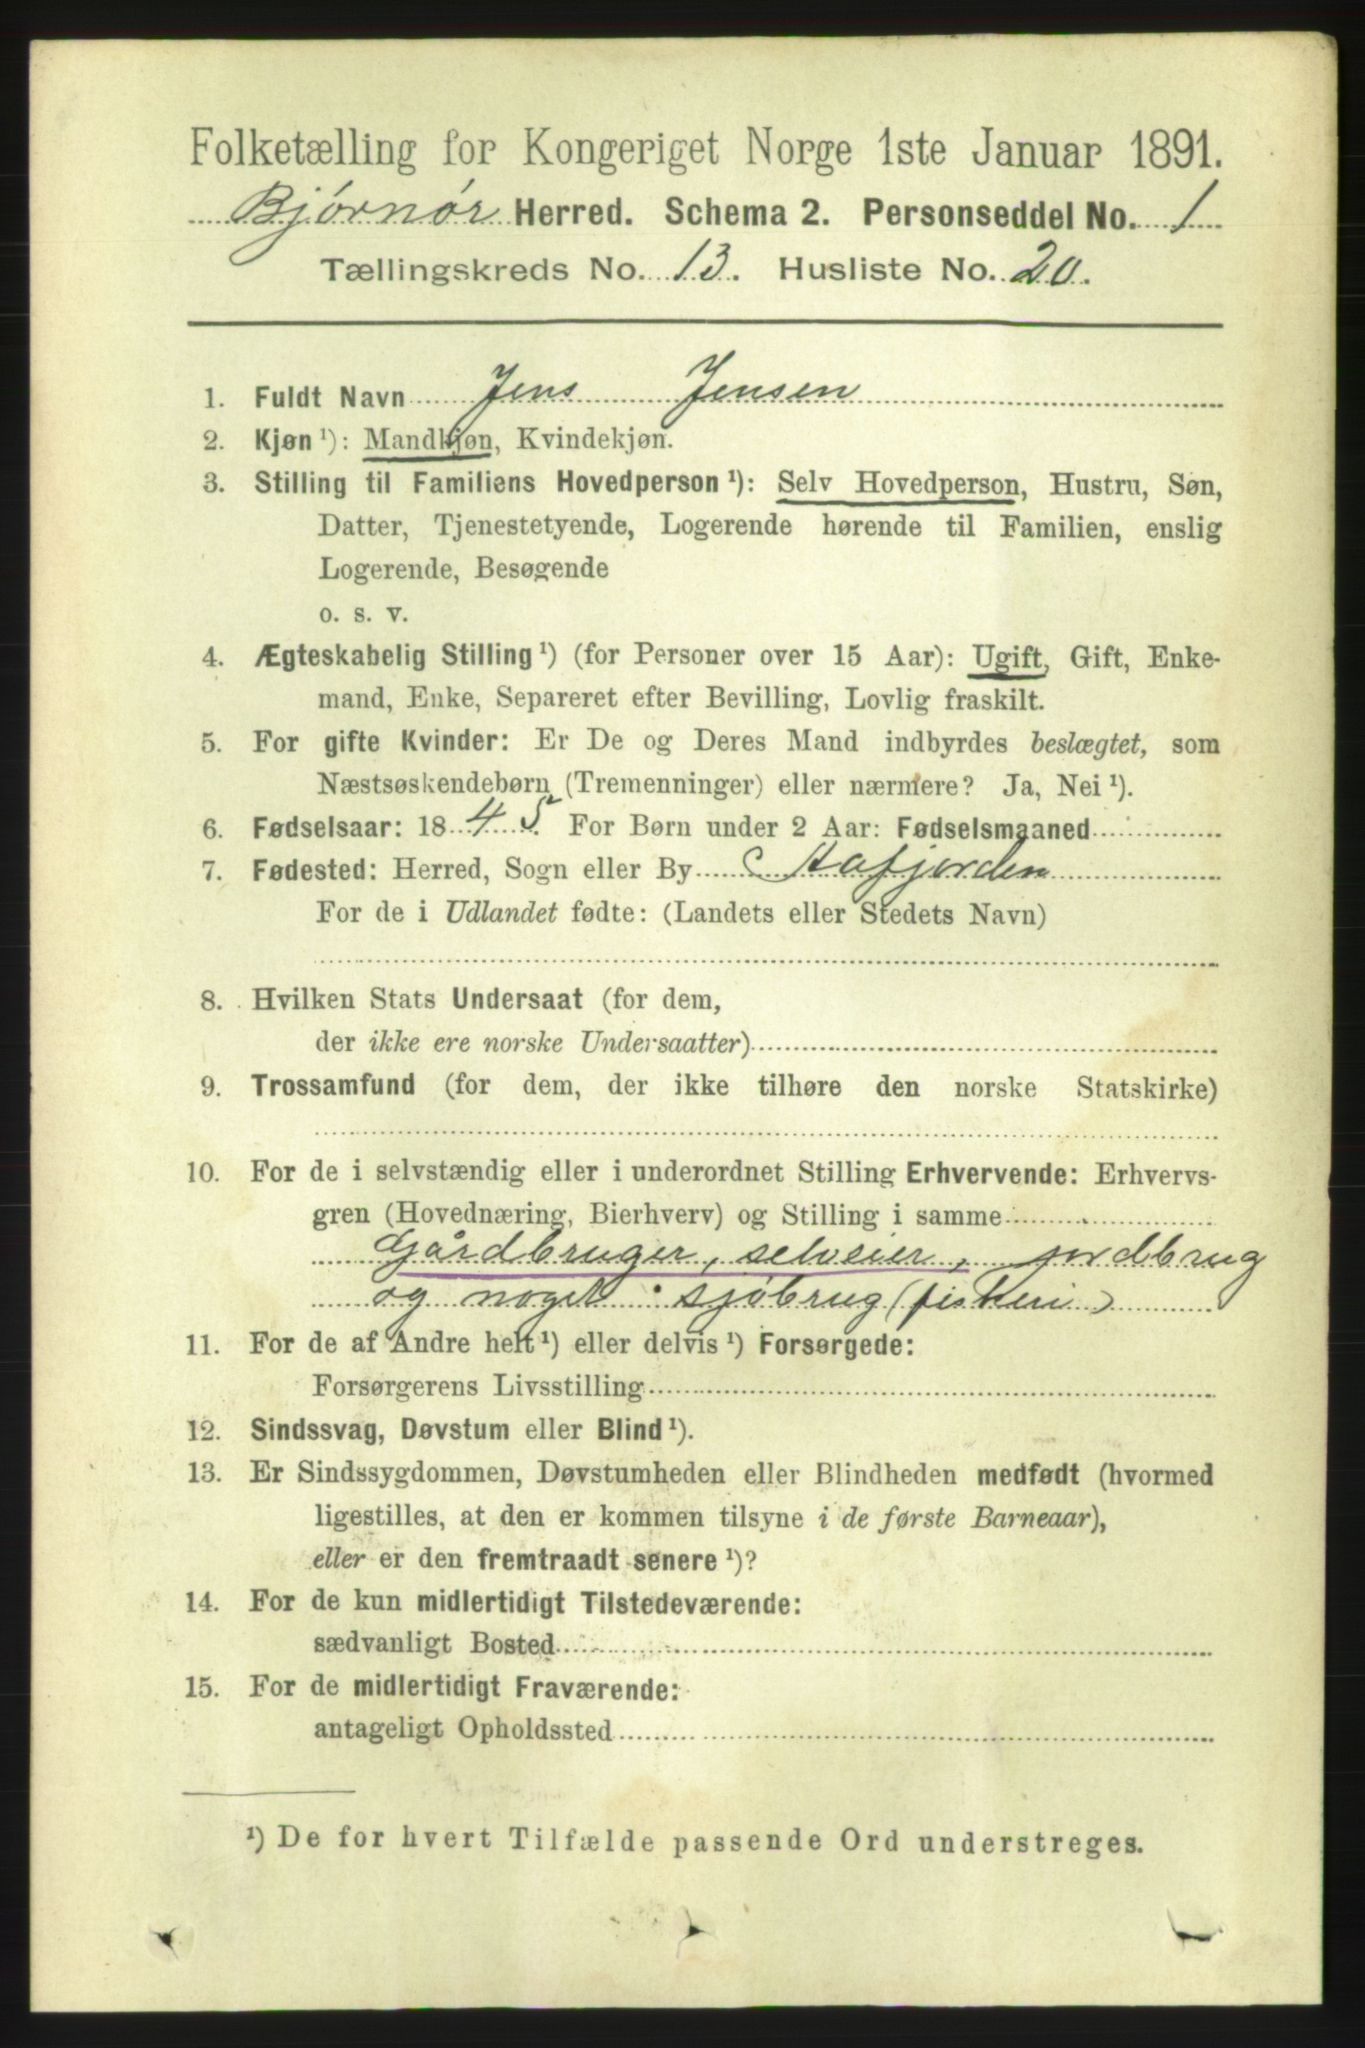 Folketælling for Kongeriget Norge 1ste Januar 1891.
Bjørnør Herred. Schema 2. Personseddel No. 1
Tællingskreds No. 13. Husliste No. 20.
1. Fuldt Navn Jens Jensen
2. Kjøn ¹): Mandkjøn, Kvindekjøn.
3. Stilling til Familiens Hovedperson ¹): Selv Hovedperson, Hustru, Søn,
Datter, Tjenestetyende, Logerende hørende til Familien, enslig
Logerende, Besøgende
o. s. v.
4. Ægteskabelig Stilling ¹) (for Personer over 15 Aar): Ugift, Gift, Enke-
mand, Enke, Separeret efter Bevilling, Lovlig fraskilt.
5. For gifte Kvinder: Er De og Deres Mand indbyrdes beslægtet, som
Næstsøskendebørn (Tremenninger) eller nærmere? Ja, Nei ¹).
6. Fødselsaar: 1845. For Børn under 2 Aar: Fødselsmaaned
7. Fødested: Herred, Sogn eller By Aafjorden
For de i Udlandet fødte: (Landets eller Stedets Navn)
8. Hvilken Stats Undersaat (for dem,
der ikke ere norske Undersaatter)
9. Trossamfund (for dem, der ikke tilhøre den norske Statskirke)
10. For de i selvstændig eller i underordnet Stilling Erhvervende: Erhvervs-
gren (Hovednæring, Bierhverv) og Stilling i samme
Gårdbruger, selveier, jordbrug
og noget sjøbrug (fiskeri)
11. For de af Andre helt ¹) eller delvis ¹) Forsørgede:
Forsørgerens Livsstilling
12. Sindssvag, Døvstum eller Blind ¹).
13. Er Sindssygdommen, Døvstumheden eller Blindheden medfødt (hvormed
ligestilles, at den er kommen tilsyne i de første Barneaar),
eller er den fremtraadt senere ¹)?
14. For de kun midlertidigt Tilstedeværende:
sædvanligt Bosted
15. For de midlertidigt Fraværende:
antageligt Opholdssted
¹) De for hvert Tilfælde passende Ord understreges.